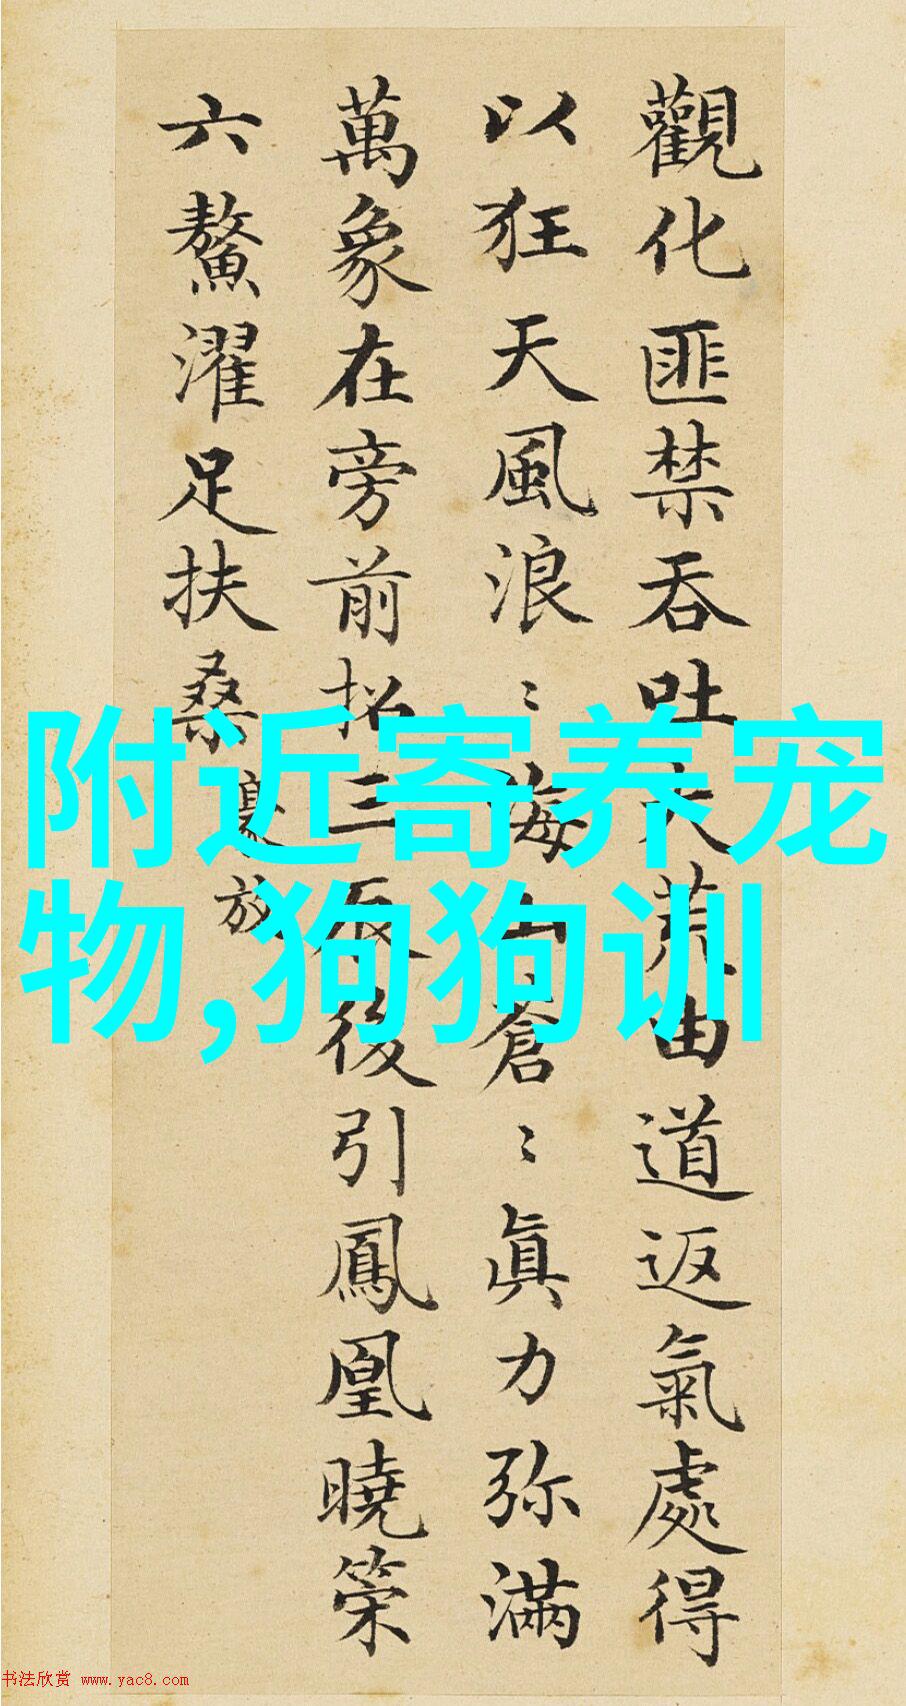 觀化匪禁吞吐大荒由道返氣處得
以狂天風浪〻海山蒼〻真力弥滿
萬象在旁前招三辰後引鳳凰曉策
六鰲濯足扶桑
豪放
附近寄养宠
物,狗狗训
书法欣赏 www.yac8.com